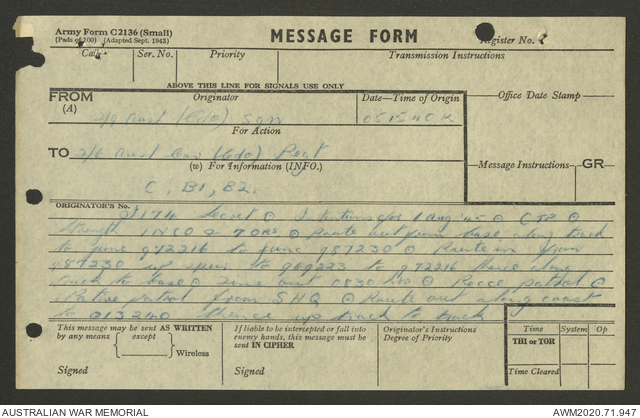 Army Form C2136 (Small)
(Pads of 100) (Adapted Sept. 1943)
MESSAGE FORM
Register No.
Call
Ser. No.
Priority
Transmission Instructions
ABOVE THIS LINE FOR SIGNALS USE ONLY
FROM
(A)
Originator
Date—Time of Origin
Office Date Stamp
2/9 Aust (Cdo) Sqn
051540K
For Action
TO
2/6 Aust Cav (Cdo) Regt
(W) For Information (INFO.)
Message Instructions
GR
C, B1, B2.
ORIGINATOR'S No.
Secret Intentions for Aug '45 CTP
Strength 1 NCO & 7 ORs Route out from base along track
to junc 972216 to junc 987230 Route in from
987230 up spur to 969223 to 972216 thence along
track to base Time out 0830 hrs Recce patrol
Native patrol from SHQ Route out along coast
to 013240 thence up track to track
This message may be sent AS WRITTEN
by any means
except
Wireless
Signed
If liable to be intercepted or fall into
enemy hands, this message must be
sent IN CIPHER
Signed
Originator's Instructions
Degree of Priority
Time
System
Op
THI or TOR
Time Cleared
AUSTRALIAN WAR MEMORIAL
AWM2020.71.947